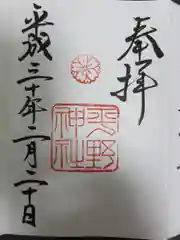 奉拝
平野神社
平成三十年二月二十日